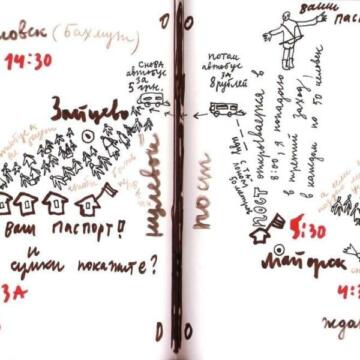 ловск (бахмут)
14:30
снова
автобус
за
5 грн.
Зайцево
ваш паспорт!!
и
сумки покажите?
ЗА
0 0
нулевой
пост
0 0
потом
автобус
за
8 рублей
ваши
пас
пост открывается в
8:00, я попадаю
в третий заход,
в каждом по 50 человек
5:30
Майорск
4:3
жда